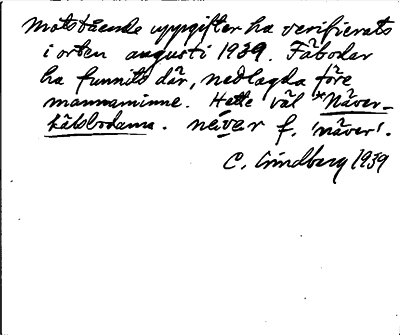 Motstående uppgifter ha verifierats
i orten augusti 1939. Fäbodar
ha funnits där, nedlagda före
mannaminne. Hette väl *Näver-
kätsbodarna. näver f. 'näver'.
C. Lindberg 1939